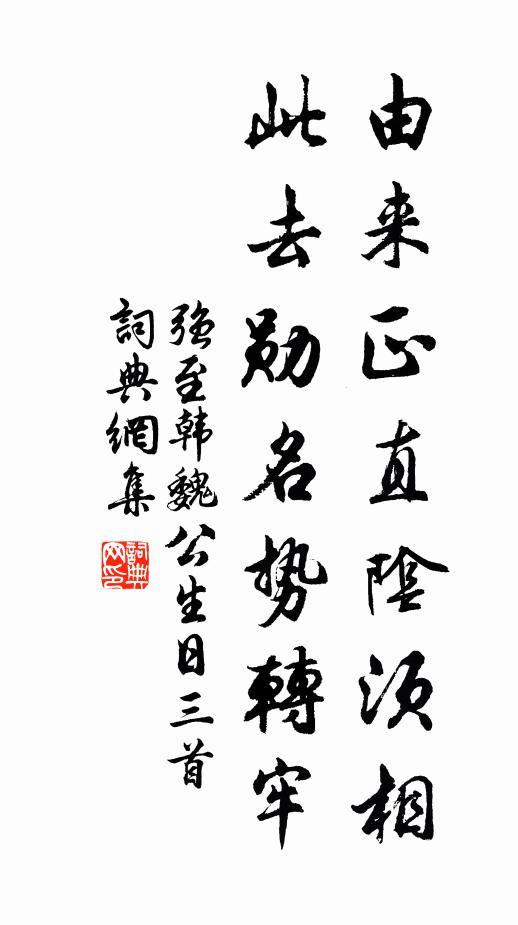 由来正直陰須相
此去勋名势轉牢
强至韩魏公生日三首
詞典網集
詞典网印